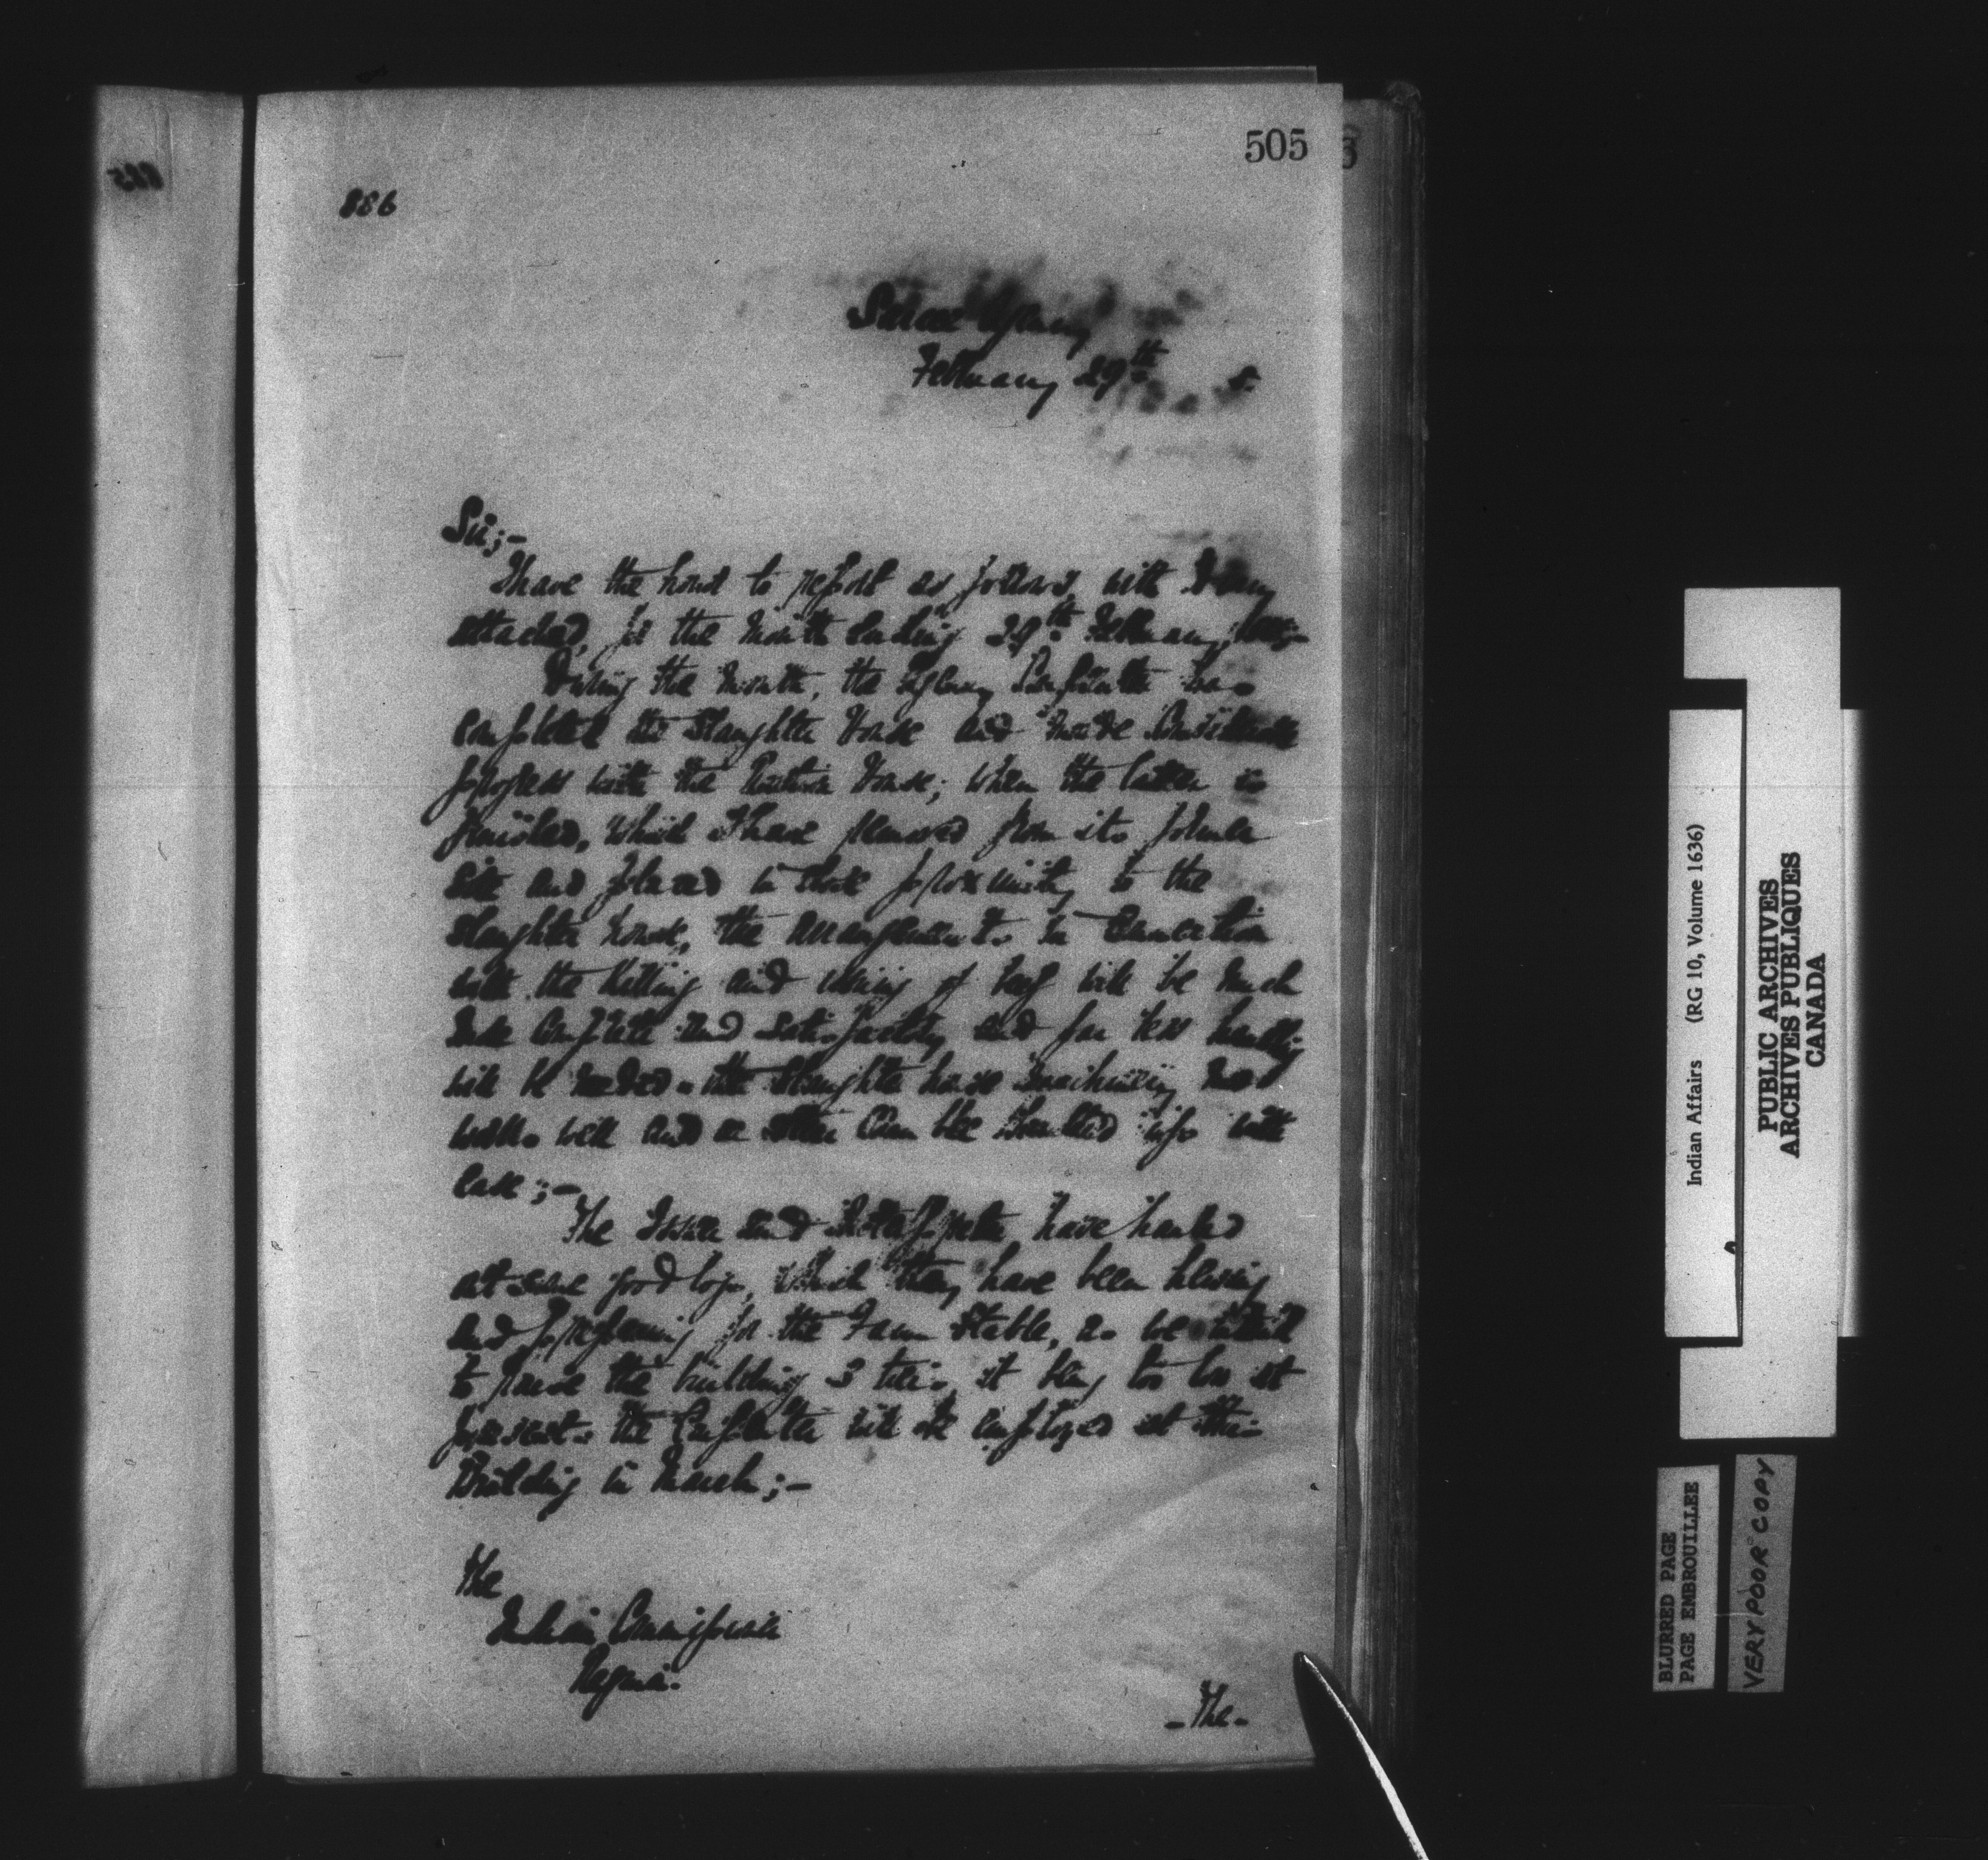 505
886
Sarcee Agency
February 29th
Sir;-
I have the honor to report as follows, with Diary
attached, for the month ending 29th February,
During the month, the Agency Carpenter has
completed the Slaughter House and made considerable
progress with the Ration House; when the latter is
finished, which I have removed from its former
site and placed in close proximity to the
Slaughter house, the arrangements in connection
with the killing and issuing of beef will be much
more complete and satisfactory and far less handling
will be needed - the Slaughter house machinery now
works well and a steer can be hoisted up with
ease;-
The Issuer and Interpreter have hauled
out some good logs, which they have been hewing
and preparing for the Farm Stable, as we intend
to raise the building 3 tiers, it being too low at
present - the Carpenter will be employed at this
Building in March;-
The
Indian Commissioner
Regina.
-The-
Indian Affairs (RG 10, Volume 1636)
PUBLIC ARCHIVES
ARCHIVES PUBLIQUES
CANADA
BLURRED PAGE
PAGE EMBROUILLEE
VERY POOR COPY